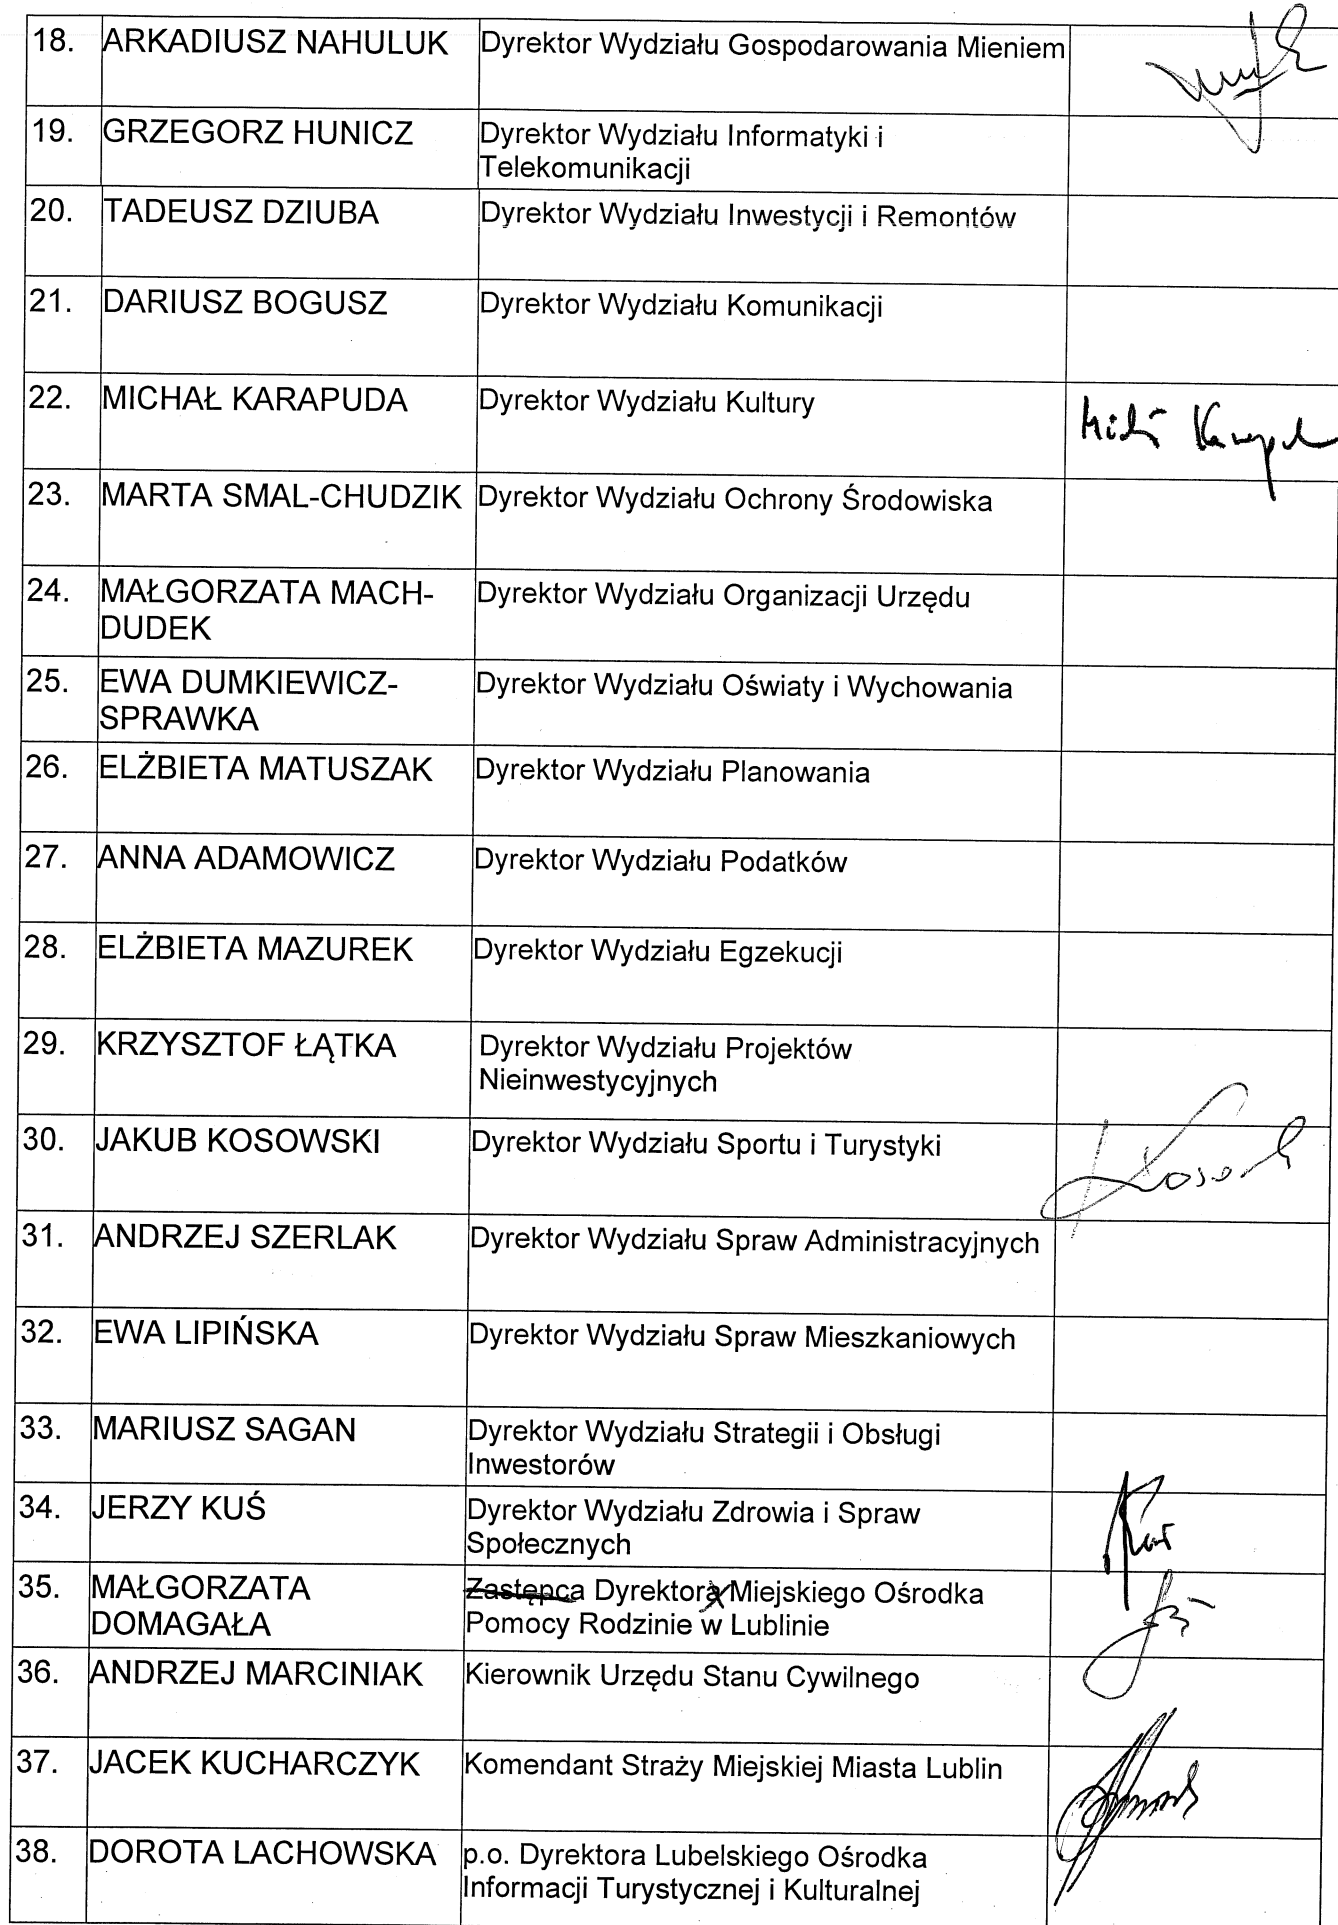 18. ARKADIUSZ NAHULUK Dyrektor Wydziału Gospodarowania Mieniem
19. GRZEGORZ HUNICZ Dyrektor Wydziału Informatyki i
Telekomunikacji
20. TADEUSZ DZIUBA Dyrektor Wydziału Inwestycji i Remontów
21. DARIUSZ BOGUSZ Dyrektor Wydziału Komunikacji
22. MICHAŁ KARAPUDA Dyrektor Wydziału Kultury
23. MARTA SMAL-CHUDZIK Dyrektor Wydziału Ochrony Środowiska
24. MAŁGORZATA MACH- Dyrektor Wydziału Organizacji Urzędu
DUDEK
25. EWA DUMKIEWICZ- Dyrektor Wydziału Oświaty i Wychowania
SPRAWKA
26. ELŻBIETA MATUSZAK Dyrektor Wydziału Planowania
27. ANNA ADAMOWICZ Dyrektor Wydziału Podatków
28. ELŻBIETA MAZUREK Dyrektor Wydziału Egzekucji
29. KRZYSZTOF ŁĄTKA Dyrektor Wydziału Projektów
Nieinwestycyjnych
30. JAKUB KOSOWSKI Dyrektor Wydziału Sportu i Turystyki
31. ANDRZEJ SZERLAK Dyrektor Wydziału Spraw Administracyjnych
32. EWA LIPIŃSKA Dyrektor Wydziału Spraw Mieszkaniowych
33. MARIUSZ SAGAN Dyrektor Wydziału Strategii i Obsługi
Inwestorów
34. JERZY KUŚ Dyrektor Wydziału Zdrowia i Spraw
Społecznych
35. MAŁGORZATA Zastępca Dyrektora Miejskiego Ośrodka
DOMAGAŁA Pomocy Rodzinie w Lublinie
36. ANDRZEJ MARCINIAK Kierownik Urzędu Stanu Cywilnego
37. JACEK KUCHARCZYK Komendant Straży Miejskiej Miasta Lublin
38. DOROTA LACHOWSKA p.o. Dyrektora Lubelskiego Ośrodka
Informacji Turystycznej i Kulturalnej